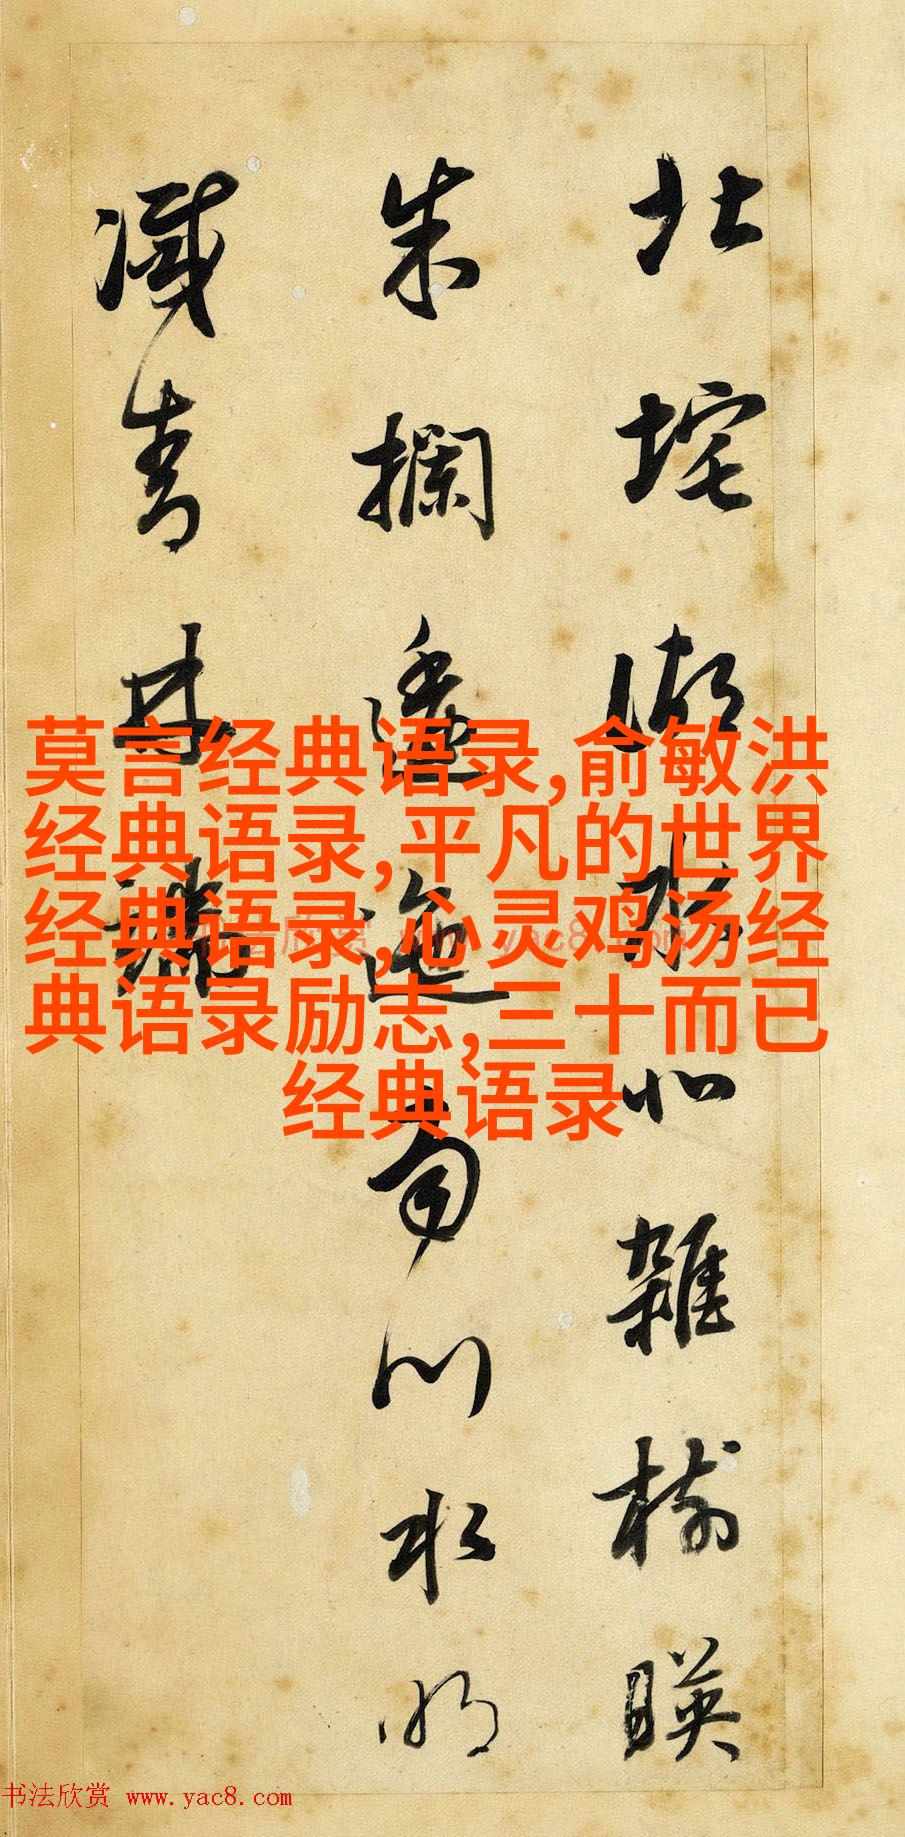 北垞湖水北雜樹暎
朱欄逶迤南川水明
滅青林端
莫言经典语录,俞敏洪
经典语录,平凡的世界
经典语录,心灵鸡汤经
典语录励志,三十而已
经典语录
书法欣赏 www.yac8.com